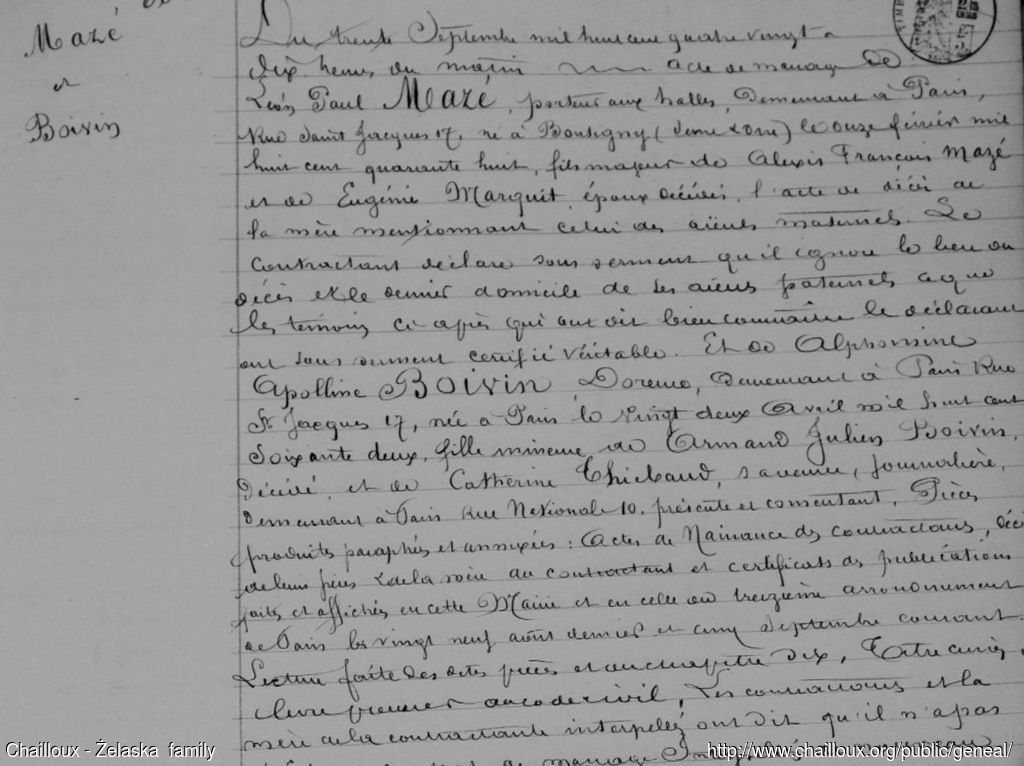 Mazé
et
Boivin
TIMBRE
Du trente Septembre mil huit cent quatre vingt à
dix heures du matin acte de mariage de
Léon Paul Mazé, porteur aux halles, demeurant à Paris,
Rue Saint Jacques 17, né à Boutigny (Seine & Oise) le onze février mil
huit cent quarante huit, fils majeur de Alexis François Mazé
et de Eugénie Marquit, époux décédés, l'acte de décès de
la mère mentionnant celui des aïeuls maternels. Le
contractant déclare sous serment qu'il ignore le lieu du
décès et le dernier domicile de ses aïeuls paternels ce que
les témoins ci après qui ont dit bien connaître le déclarant
ont sous serment certifié véritable. Et de Alphonsine
Apolline Boivin, Doreuse, demeurant à Paris Rue
St Jacques 17, née à Paris le vingt deux Avril mil huit cent
Soixante deux, fille mineure de Armand Julien Boivin,
Décédé, et de Catherine Thiebaud, sa veuve, journalière,
demeurant à Paris Rue Nationale 10, présente et consentant. Pièces
produites paraphées et annexées : Actes de Naissance des contractants, décès
de leurs pères & de la mère du contractant et certificats des publications
faites et affichées en cette Mairie et en celle du treizième arrondissement
de Paris les vingt neuf août dernier et cinq Septembre courant.
Lecture faite des actes précités et du chapitre dix, Titre cinq,
livre premier du code civil, Les contractants et la
mère de la contractante interpelés ont dit qu'il n'a pas
de mariage
Chailloux - Żelaska family
http://www.chailloux.org/public/geneal/